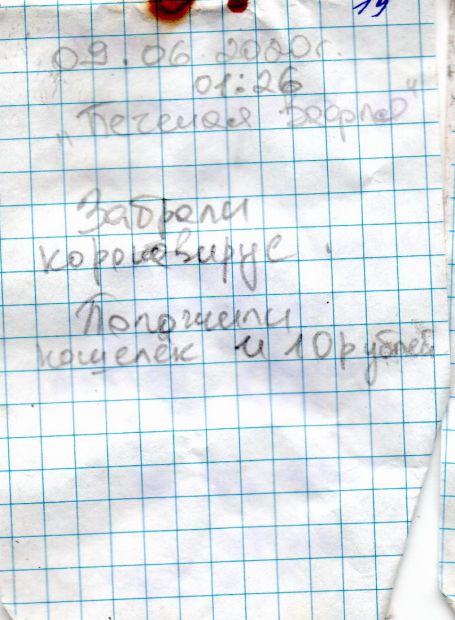 19
09.06.2020г.
01:26
"Печеная
Забрали
коронавирус.
Положили
кошелёк и 10 рублей